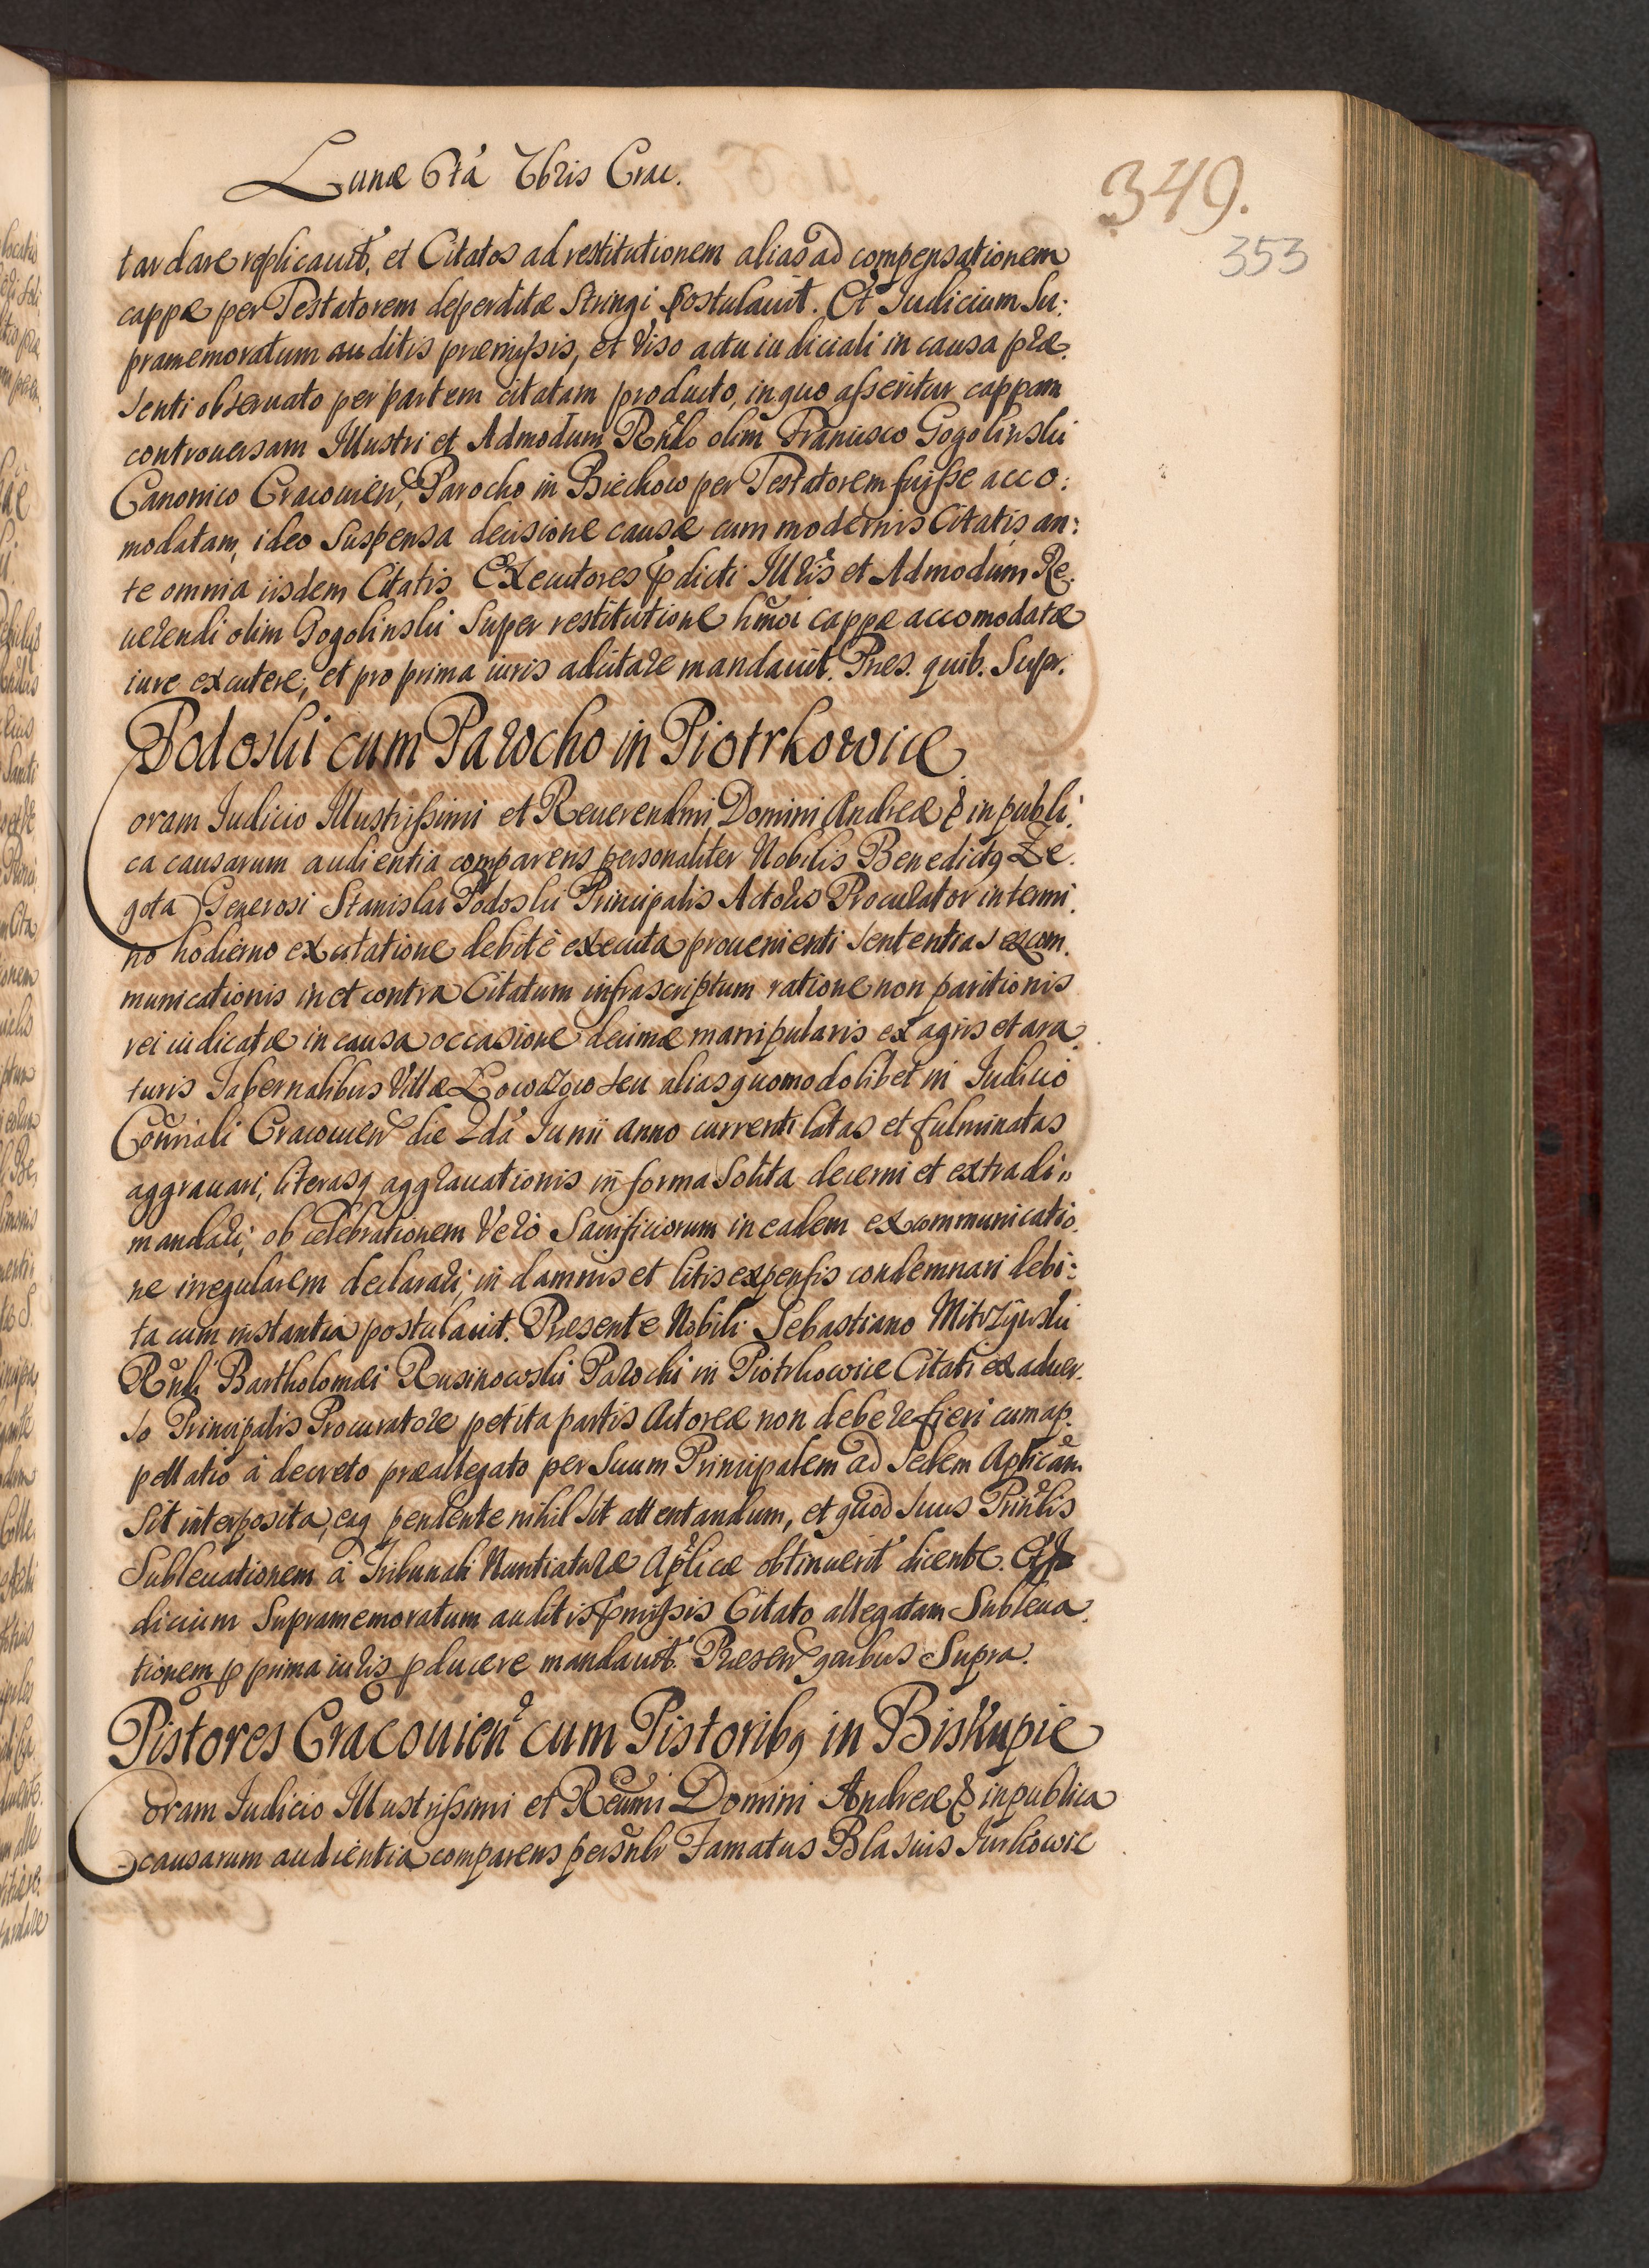 Lunæ 6tá 7bris Crac.
349.
353
tardare replicauit, et Citatos ad restitutionem alias ad compensationem
cappæ per Testatorem deperditæ stringi postulauit. Et Iudicium Su:
pramemoratum auditis præmissis, et viso actu iudiciali in causa præ.
senti obseruato per partem citatam producto, in quo asseritur cappam
controuersam Illustri et Admodum Rndo olim Francisco Gogolinski
Canonico Cracouien, Parocho in Biechow per Testatorem fuisse acco:
modatam, ideo suspensa decisione causæ cum modernis Citatis an:
te omnia iisdem Citatis Executores pdicti Illris et Admodum Re.
uerendi olim Gogolinski super restitutione hmoi cappæ accomodatæ
iure excutere, et pro prima iuris adcitare mandauit. Pnes. quib. Supr.
Podoski cum Parocho in Piotrkowice
Coram Iudicio Illustrissimi et Reuerendmi Domini Andreæ & in publi:
ca causarum audientia comparens personaliter Nobilis Benedictg Ze.
gota Generosi Stanislai Podoski Principalis Actoris Procurator in termi.
no hodierno ex citatione debitè executa prouenienti sententias excom.
municationis in et contra Citatum infrascriptum ratione non paritionis
rei iudicatæ in causa occasione decimæ manipularis ex agris et ara.
turis Tabernalibus Villæ seu alias quomodolibet in Iudicio
Conriali Cracouien die 2dá Iunii anno currenti latas et fulminatas
aggrauari, literasq aggrauationis in forma solita decerni et extradi"
mandari; ob celebrationem verò Sacrificiorum in eadem excommunicatio.
ne irregularem declarari, in damnis et litis expensis condemnari debi:
ta cum instantia postulauit. Præsente Nobili Sebastiano
Rndi Bartholomæi Rusinowski Parochi in Piotrkowice Citati ex aduer.
so Principalis Procuratore petita partis Actoreæ non debere fieri cum ap.
pellatio à decreto præallegato per suum Principalem ad Sedem Aplicam
sit interposita, eaq pendente nihil sit attentandum, et quòd suus Prinlis
Subleuationem à Tribunali Nuntiaturæ Aplicæ obtinuerit dicente. Et Iu
dicium Supramemoratum auditis pmissis Citato allegatam Subleua.
tionem p prima iuris pducere mandauit. Præsen quibus Supra.
Pistores Cracouien cum Pistoribg in Biskupie
Coram Iudicio Illustrissimi et Reumi Domini Andreæ & in publica
causarum audientia comparens persnlr Famatus Blasius Iurkowic